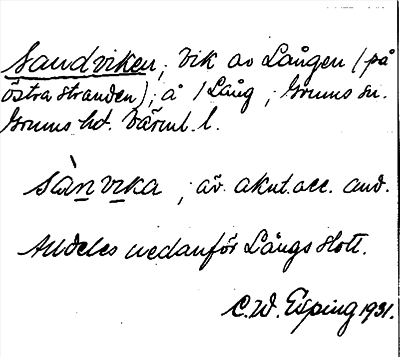 Sandviken, vik av Lången (på
östra stranden), å /Lång, Grums sn.
Grums hd. Värml. l.
sàn vika, äv. akut. acc. anv.
Alldeles nedanför Långs slott.
C. W. Esping 1931.